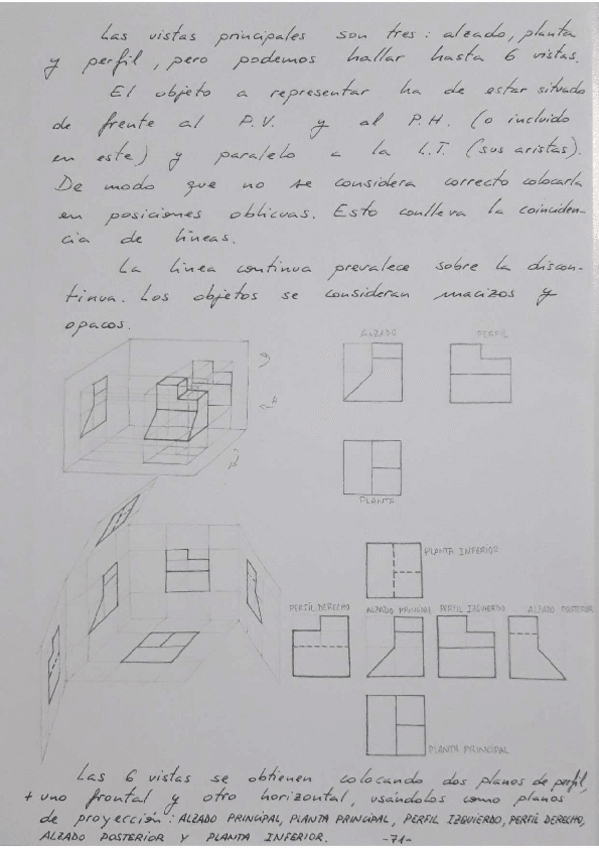 Las vistas principales son tres: alzado, planta
y perfil, pero podemos hallar hasta 6 vistas.
El objeto a representar ha de estar situado
de frente al P.V. y al P.H. (o incluido
en este) y paralelo a la L.T. (sus aristas).
De modo que no se considera correcto colocarla
en posiciones oblicuas. Esto conlleva la coinciden-
cia de líneas.
La línea continua prevalece sobre la discon-
tinua. Los objetos se consideran macizos y
opacos.
ALZADO
PERFIL
PLANTA
PLANTA INFERIOR
PERFIL DERECHO
ALZADO PRINCIPAL
PERFIL IZQUIERDO
ALZADO POSTERIOR
PLANTA PRINCIPAL
Las 6 vistas se obtienen colocando dos planos de perfil,
+ uno frontal y otro horizontal, usándolos como planos
de proyección: ALZADO PRINCIPAL, PLANTA PRINCIPAL, PERFIL IZQUIERDO, PERFIL DERECHO,
ALZADO POSTERIOR Y PLANTA INFERIOR.
-71-